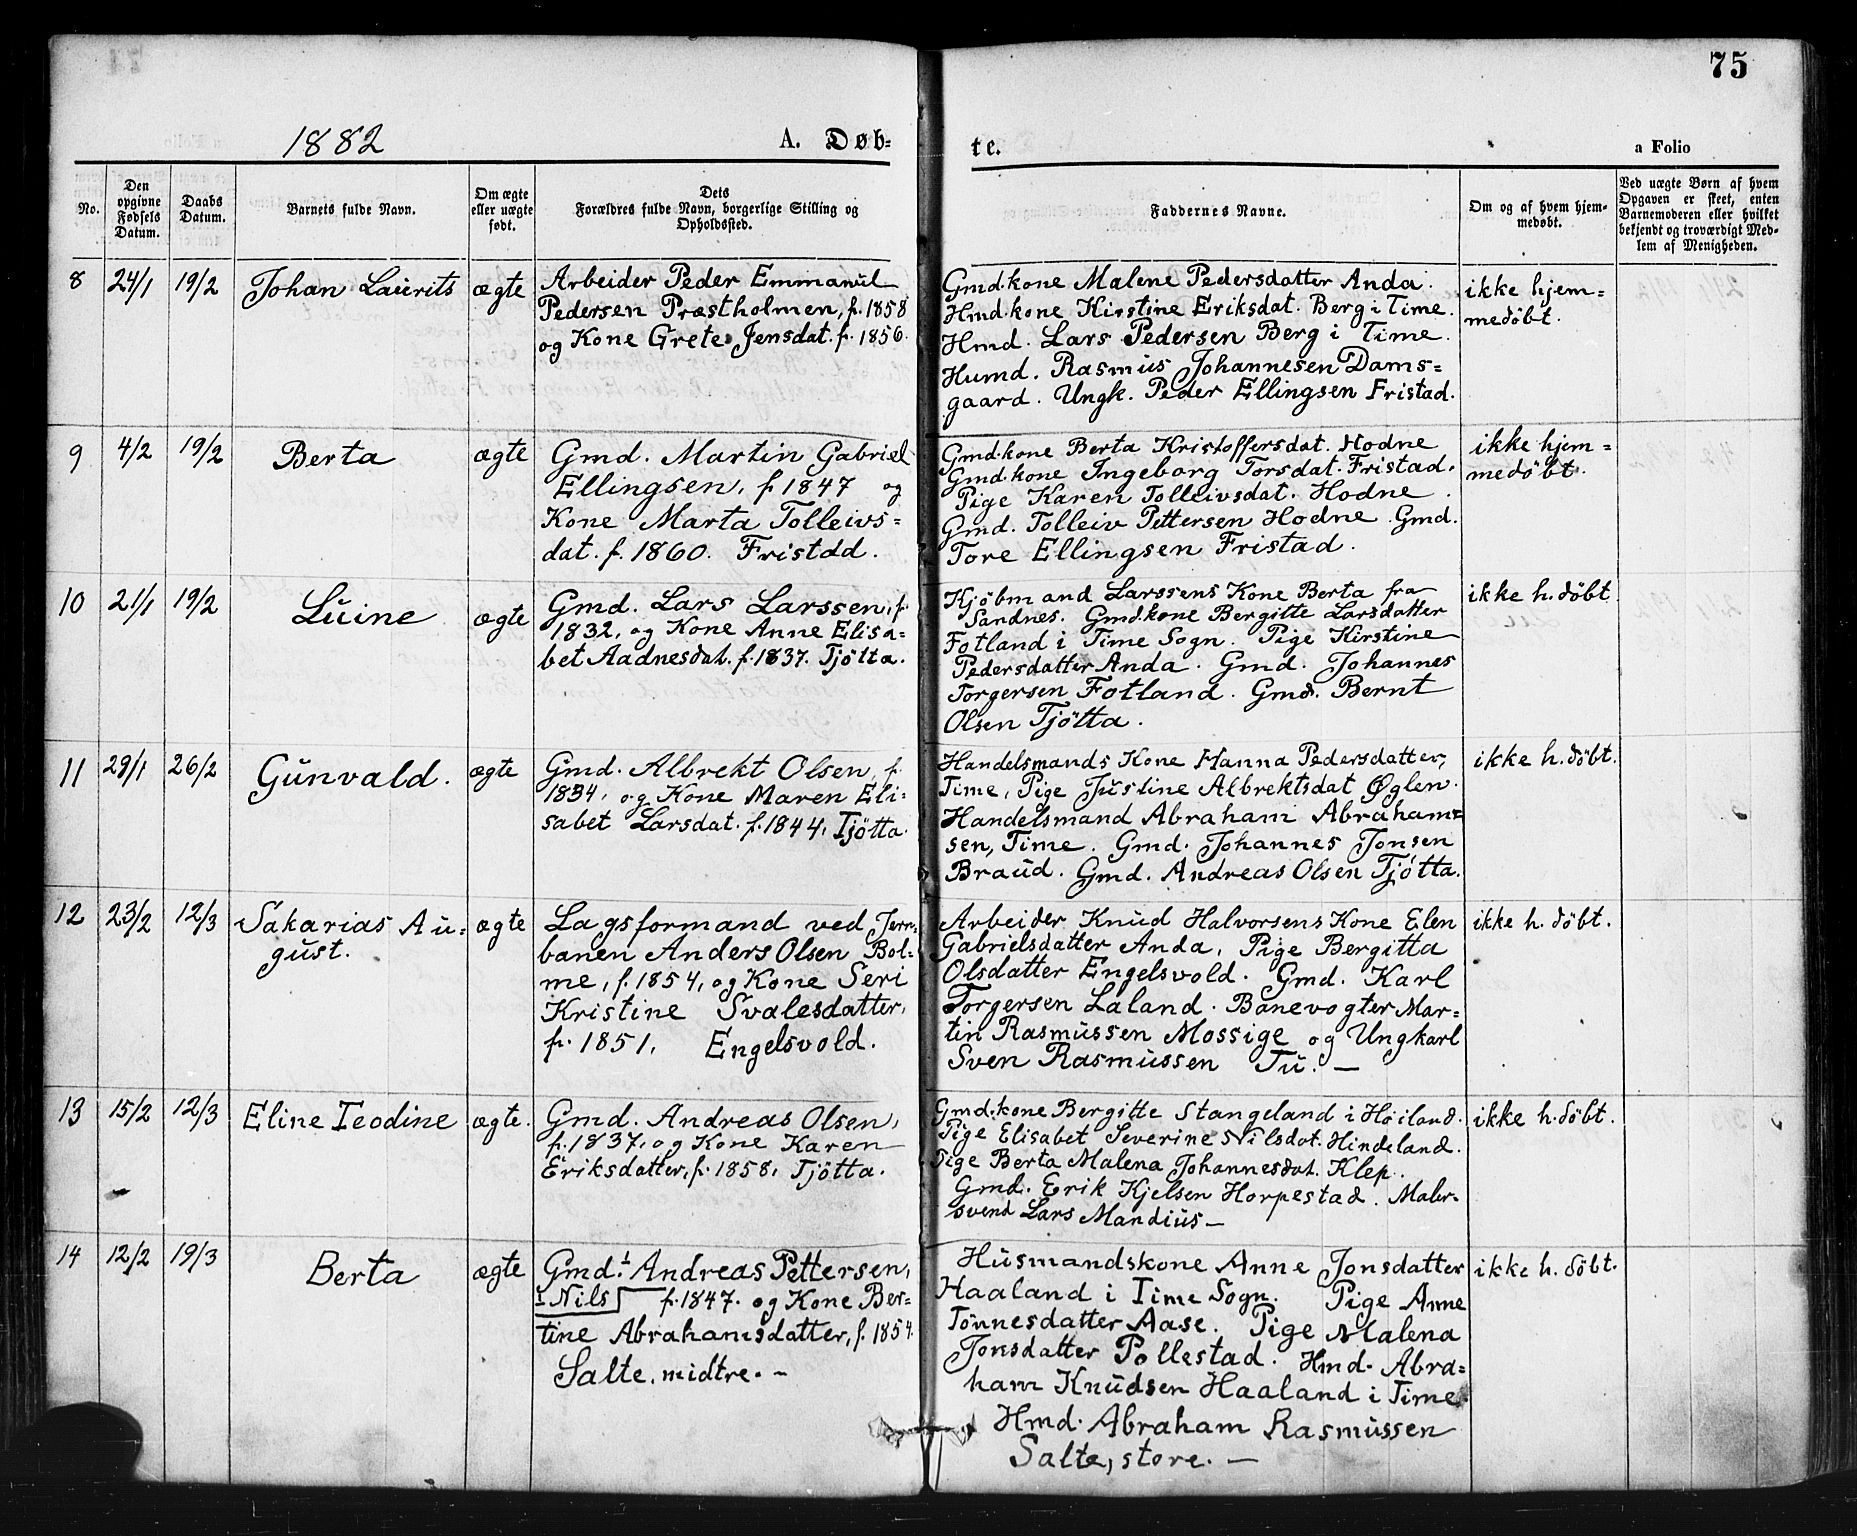 75
1882 A. Døb-te. a Folio
No.
Den opgivne Fødsels Datum.
Daabs Datum.
Barnets fulde Navn.
Om ægte eller uægte født.
Dets Forældres fulde Navn, borgerlige Stilling og Opholdssted.
Faddernes Navne.
Om og af hvem hjem-medøbt.
Ved uægte Børn af hvem Opgaven er skeet, enten Barnemoderen eller hvilket bekjendt og troværdigt Med-lem af Menigheden.
8 24/1 19/2 Johan Laurits ægte
Arbeider Peder Emmanuel
Pedersen Præstholmen, f. 1858
og Kone Grete Jensdat. f. 1856.
Gmd.kone Malene Pedersdatter Anda.
Hmd.kone Kirstine Eriksdat. Berg i Time.
Hmd. Lars Pedersen Berg i Time.
Humd. Rasmus Johannesen Dams=
gaard. Ungk. Peder Ellingsen Fristad.
ikke hjem=
medøbt.
9 4/2 19/2 Berta ægte
Gmd. Martin Gabriel
Ellingsen, f. 1847 og
Kone Marta Tolleivs=
dat. f. 1860. Fristad.
Gmd.kone Berta Kristoffersdat. Hodne
Gmd.kone Ingeborg Torsdat. Fristad.
Pige Karen Tolleivsdat. Hodne.
Gmd. Tolleiv Pettersen Hodne. Gmd.
Tore Ellingsen Fristad.
ikke hjem=
medøbt.
10 21/1 19/2 Luine ægte
Gmd. Lars Larssen, f.
1832, og Kone Anne Elisa=
bet Aadnesdat. f. 1837. Tjøtta.
Kjøbmand Larssens Kone Berta fra
Sandnes. Gmd.kone Bergitte Larsdatter
Fotland i Time Sogn. Pige Kirstine
Pedersdatter Anda. Gmd. Johannes
Torgersen Fotland. Gmd. Bernt
Olsen Tjøtta.
ikke h. døbt
11 29/1 26/2 Gunvald. ægte
Gmd. Albrekt Olsen, f.
1834, og Kone Maren Eli=
sabet Larsdat. f. 1844, Tjøtta.
Handelsmands Kone Hanna Pedersdatter,
Time, Pige Justine Albrektsdat Øglen.
Handelsmand Abraham Abraham=
sen, Time. Gmd. Johannes Jonsen
Braud. Gmd. Andreas Olsen Tjøtta.
ikke h. døbt.
12 23/2 12/3 Sakarias Au=
gust. ægte
Lagsformand ved Jern-
banen Anders Olsen Bol=
me, f. 1854, og Kone Seri
Kristine Svalesdatter,
f. 1851, Engelsvold.
Arbeider Knud Halvorsens Kone Elen
Gabrielsdatter Anda, Pige Bergitta
Olsdatter Engelsvold. Gmd. Karl
Torgersen Laland. Banevogter Mar=
tin Rasmussen Mossige og Ungkarl
Sven Rasmussen Tu. —
ikke h. døbt.
13 15/2 12/3 Eline Teodine ægte.
Gmd. Andreas Olsen,
f. 1837, og Kone Karen
Eriksdatter, f. 1858, Tjøtta.
Gmd.kone Bergitte Stangeland i Høiland.
Pige Elisabet Severine Nilsdat. Hindeland.
Pige Berta Malena Johannesdat. Klep.
Gmd. Erik Kjelsen Horpestad. Maler-
svend Lars Mandius —
ikke h. døbt.
14 12/2 19/3 Berta ægte
Gmd. 1 Andreas Pettersen,
1 Nils f. 1847. og Kone Ber=
tine Abrahamsdatter, f. 1854.
Salte, midtre. —
Husmandskone Anne Jonsdatter
Haaland i Time Sogn. Pige Anne
Tønnesdatter Aase. Pige Malena
Jonsdatter Pollestad. Hmd. Abra=
ham Knudsen Haaland i Time.
Hmd. Abraham Rasmussen
Salte, store. —
ikke h. døbt.